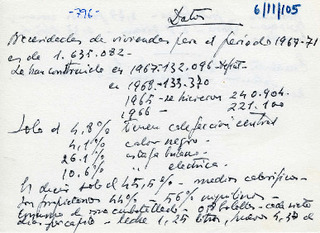 -796-
Datos
6/11/105
Necesidades de viviendas para el período 1967-71
es de 1.635.082-
Se han construido en 1967-132.096-
en 1968-133.370
1965- se hicieron 240.904.
1966- 221.100
Solo el 4.8% tienen calefacción central
4,1% calor negro-
26.1% estufa butano-
10.6% " electrica.
Es decir solo el 45,5%- medios calorificos-
Son propietarios 44%- 56% inquilinos-
Consumo de vino embotellado- botellas- cada
dia per capita- leche 1,25 litros, huevos 4,30 de